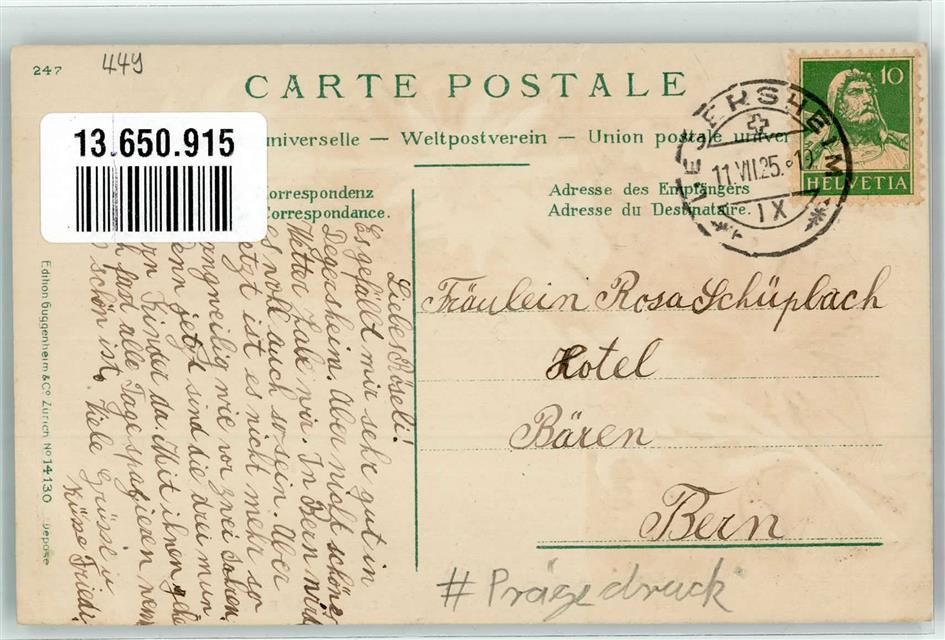 247
449
CARTE POSTALE
13.650.915
universelle — Weltpostverein — Union postale univer
Correspondenz
Correspondance.
Adresse des Empfängers
Adresse du Destinataire.
10
HELVETIA
DEGERSHEIM
11.VII.25.
IX
Liebes Röseli!
Es gefällt mir sehr gut in
Degersheim. Aber nicht schönes
Wetter habe wir. In Bern wirt
es woll auch so sein. Aber
jetzt ist es nicht mehr so
langweilig wie vor zwei Jahren
denn jetzt sind die drei
Kinder da. Mit ihnen gehe
ich fast alle Tage spazieren wenn
schön ist. Viele Grüsse u
Küsse Friedi
Fräulein Rosa Schüpbach
Hotel
Bären
Bern
# Prägedruck
Edition Guggenheim & Co Zürich No 14130 Déposé